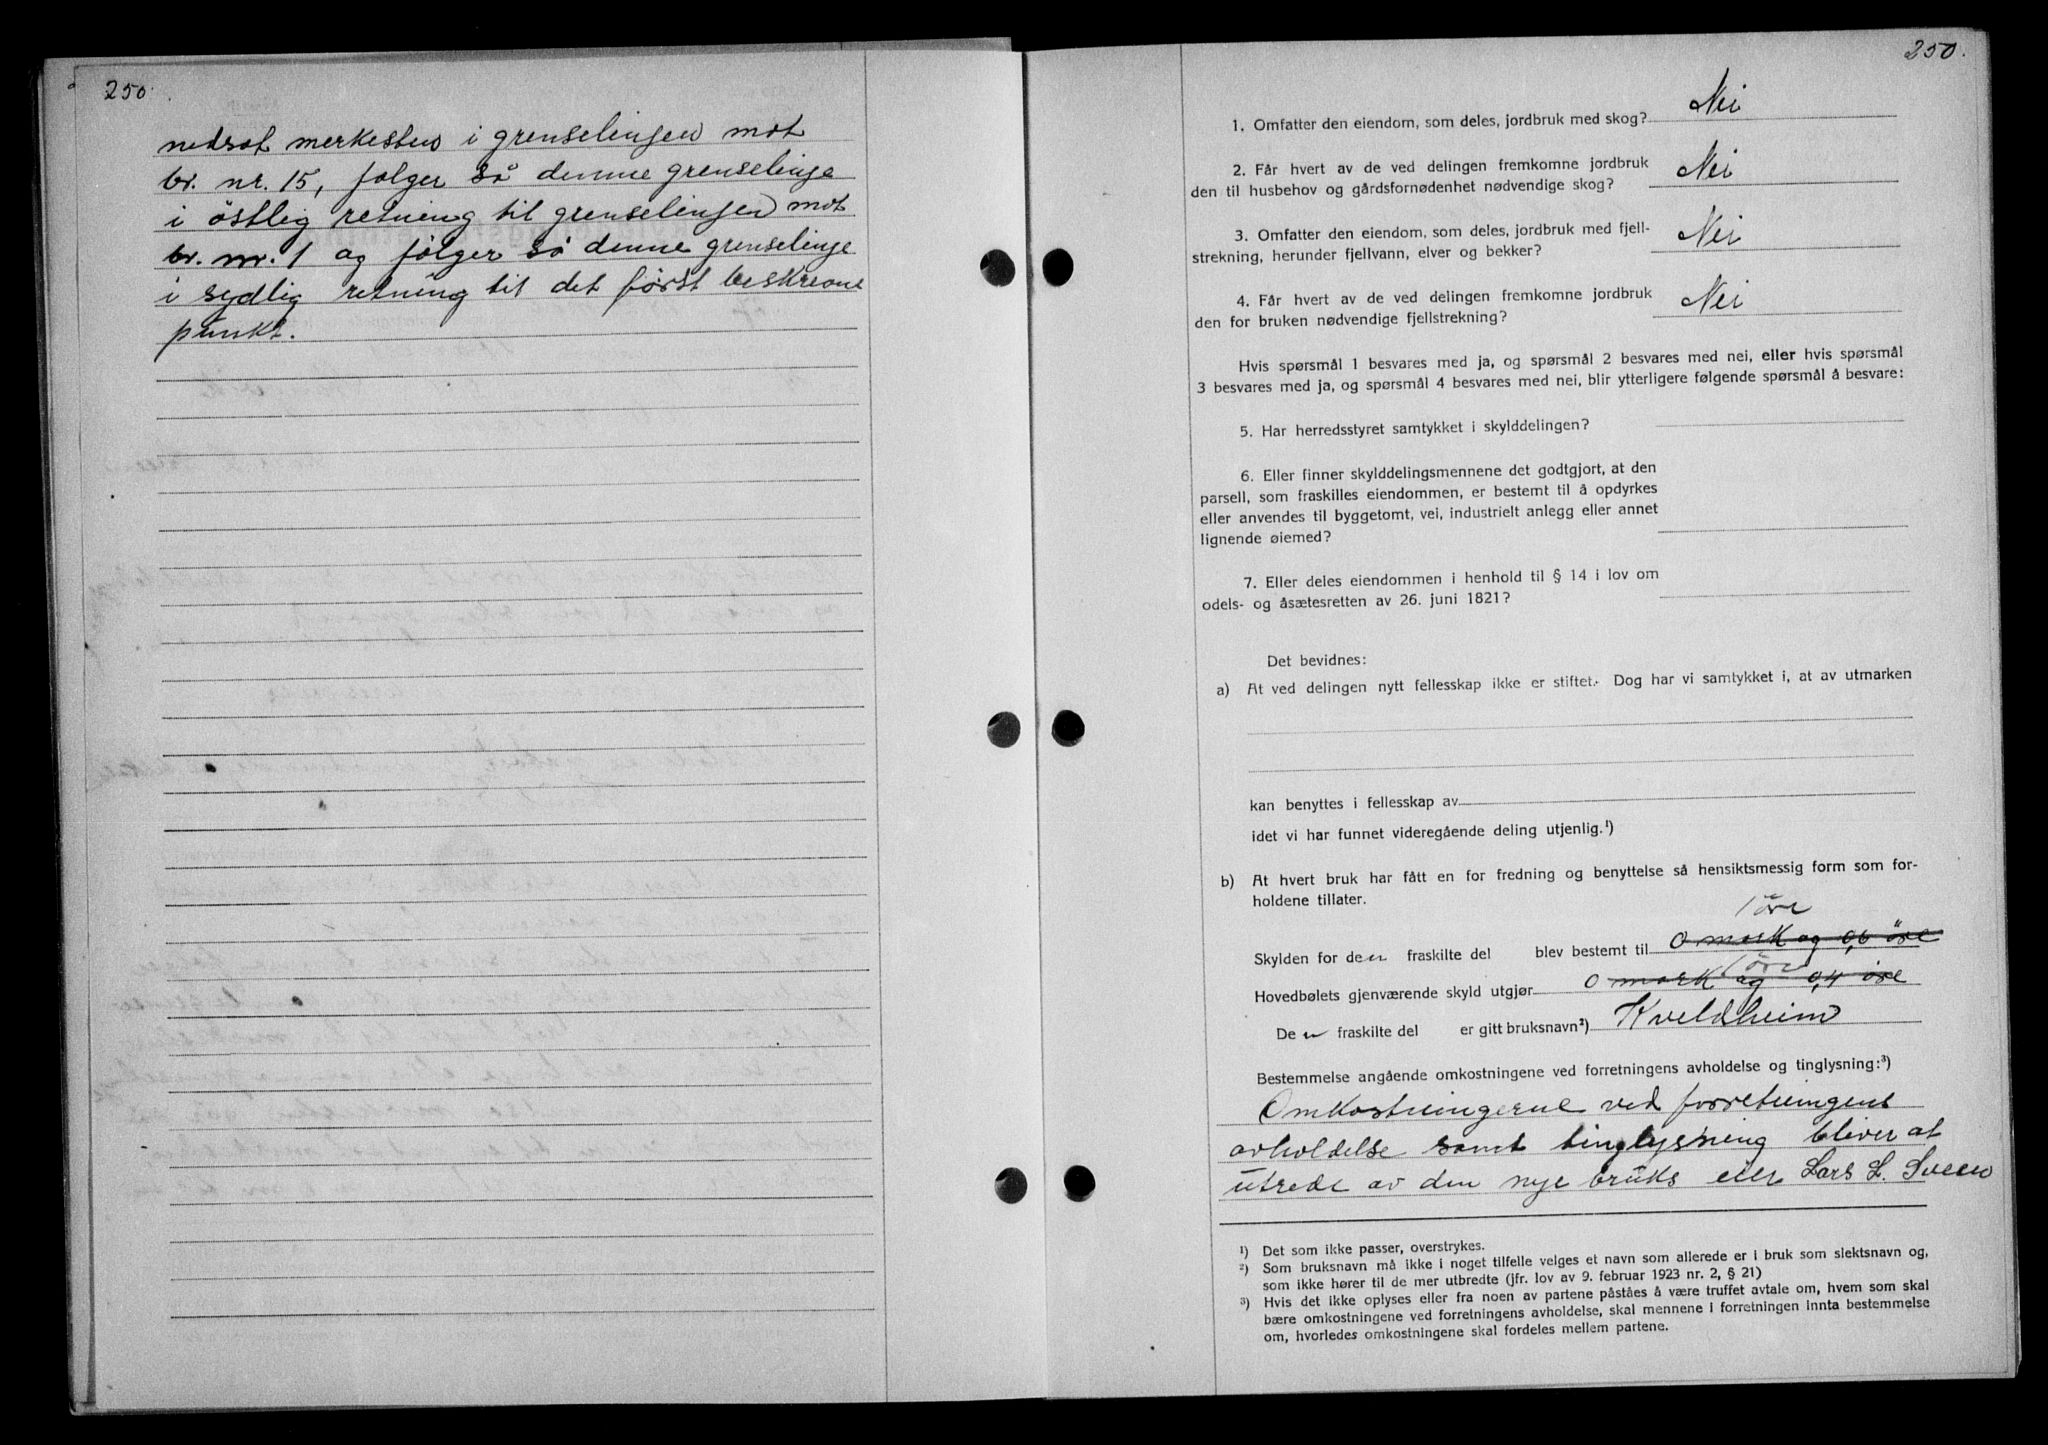 250.
nedsat merkesten i grenselingen mot
br. nr. 15, følger så denne grenselinje
i östlig retning til grenselingen mot
br. nr. 1 og følger så denne grenselinje
i sydlig retning til det först beskrevne
punkt.
250.
1. Omfatter den eiendom, som deles, jordbruk med skog? Nei
2. Får hvert av de ved delingen fremkomne jordbruk
den til husbehov og gårdsfornødenhet nødvendige skog? Nei
3. Omfatter den eiendom, som deles, jordbruk med fjell-
strekning, herunder fjellvann, elver og bekker? Nei
4. Får hvert av de ved delingen fremkomne jordbruk
den for bruken nødvendige fjellstrekning? Nei
Hvis spørsmål 1 besvares med ja, og spørsmål 2 besvares med nei, eller hvis spørsmål
3 besvares med ja, og spørsmål 4 besvares med nei, blir ytterligere følgende spørsmål å besvare:
5. Har herredsstyret samtykket i skylddelingen?
6. Eller finner skylddelingsmennene det godtgjort, at den
parsell, som fraskilles eiendommen, er bestemt til å opdyrkes
eller anvendes til byggetomt, vei, industrielt anlegg eller annet
lignende øiemed?
7. Eller deles eiendommen i henhold til § 14 i lov om
odels- og åsætesretten av 26. juni 1821?
Det bevidnes:
a) At ved delingen nytt fellesskap ikke er stiftet. Dog har vi samtykket i, at av utmarken
kan benyttes i fellesskap av
idet vi har funnet videregående deling utjenlig.¹)
b) At hvert bruk har fått en for fredning og benyttelse så hensiktsmessig form som for-
holdene tillater.
1 öre
Skylden for den fraskilte del blev bestemt til 0 mark og 0,6 öre
1 öre
Hovedbølets gjenværende skyld utgjør 0 mark og 0,4 öre
Den fraskilte del er gitt bruksnavn²) Kveldheim
Bestemmelse angående omkostningene ved forretningens avholdelse og tinglysning:³)
Omkostningerne ved forretningens
avholdelse samt tinglysning bliver at
utrede av den nye bruks eier Lars L. Sveen
¹) Det som ikke passer, overstrykes.
²) Som bruksnavn må ikke i noget tilfelle velges et navn som allerede er i bruk som slektsnavn og,
som ikke hører til de mer utbredte (jfr. lov av 9. februar 1923 nr. 2, § 21)
³) Hvis det ikke oplyses eller fra noen av partene påståes å være truffet avtale om, hvem som skal
bære omkostningene ved forretningens avholdelse, skal mennene i forretningen innta bestemmelse
om, hvorledes omkostningene skal fordeles mellem partene.